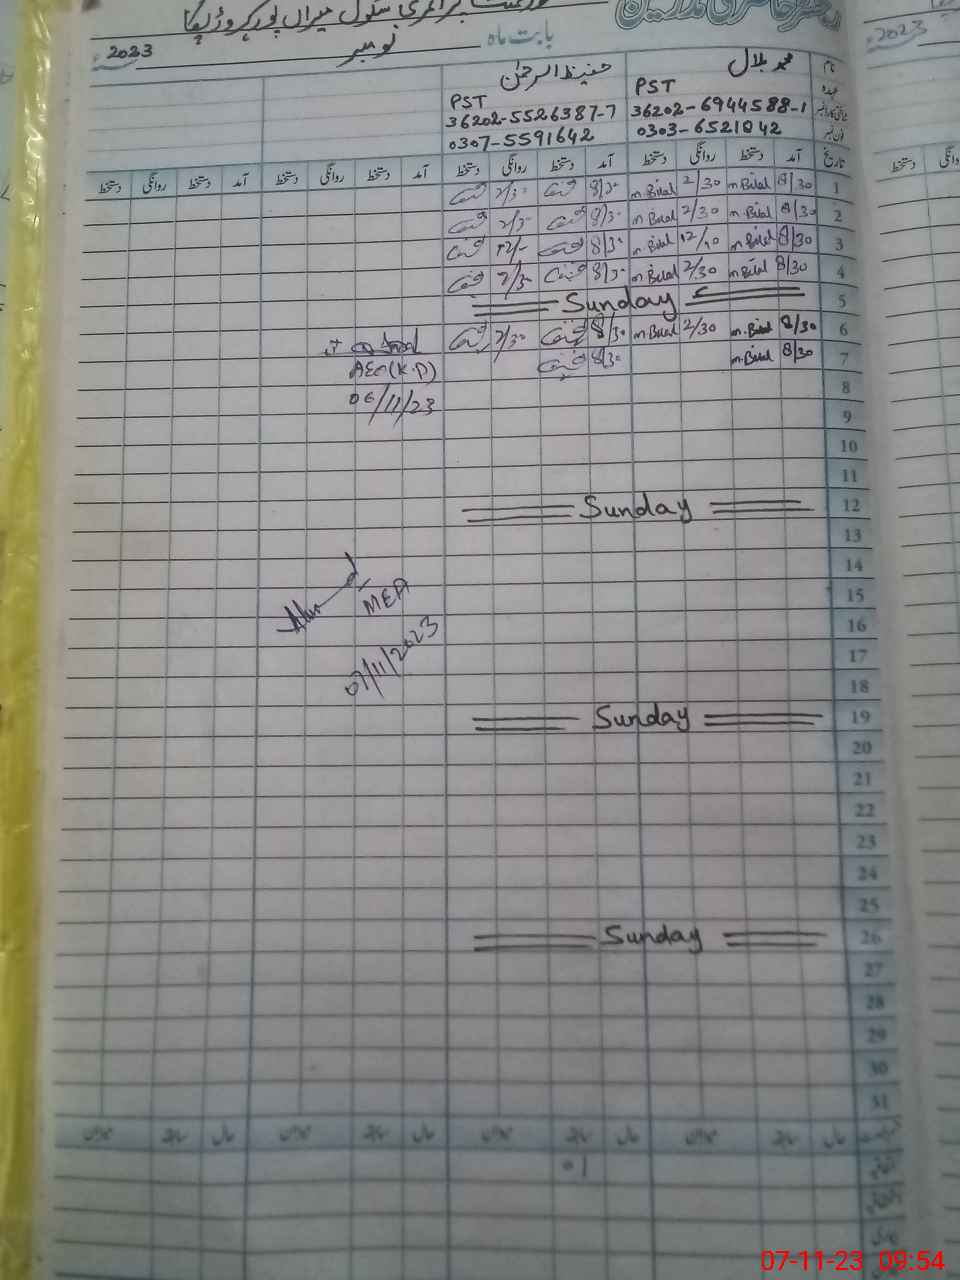 گورنمنٹ پرائمری سکول میراں پور کہروڑ پکا
2023 نومبر بابت ماہ
نام محمد بلال حفیظ الرحمٰن
عہدہ PST PST
36202-6944588-1 36202-5526387-7
فون نمبر 0303-6521042 0307-5591642
تاریخ آمد دستخط روانگی دستخط آمد دستخط روانگی دستخط آمد دستخط روانگی دستخط آمد دستخط روانگی دستخط
1 8/30 m.Bilal 2/30 m.Bilal 8/30 2/30
2 8/30 m.Bilal 2/30 m.Bilal 8/30 2/30
3 8/30 m.Bilal 12/10 m.Bilal 8/30 12/-
4 8/30 m.Bilal 2/30 m.Bilal 8/30 2/30
5 Sunday
6 8/30 m.Bilal 2/30 m.Bilal 8/30 2/30
7 8/30 m.Bilal 8/30
AEO(K.P)
06/11/23
8
9
10
11
12 Sunday
13
14
15
MEA
16
07/11/2023
17
18
19 Sunday
20
21
22
23
24
25
26 Sunday
27
28
29
30
31
01
2023
دستخط روانگی
07-11-23 09:54